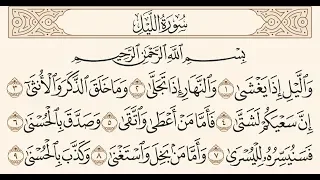 سُورَةُ اللَّيْلِ
بِسْمِ اللَّهِ الرَّحْمَٰنِ الرَّحِيمِ
وَالَّيْلِ إِذَا يَغْشَىٰ ١ وَالنَّهَارِ إِذَا تَجَلَّىٰ ٢ وَمَا خَلَقَ الذَّكَرَ وَالْأُنثَىٰ ٣
إِنَّ سَعْيَكُمْ لَشَتَّىٰ ٤ فَأَمَّا مَنْ أَعْطَىٰ وَاتَّقَىٰ ٥ وَصَدَّقَ بِالْحُسْنَىٰ ٦
فَسَنُيَسِّرُهُ لِلْيُسْرَىٰ ٧ وَأَمَّا مَن بَخِلَ وَاسْتَغْنَىٰ ٨ وَكَذَّبَ بِالْحُسْنَىٰ ٩